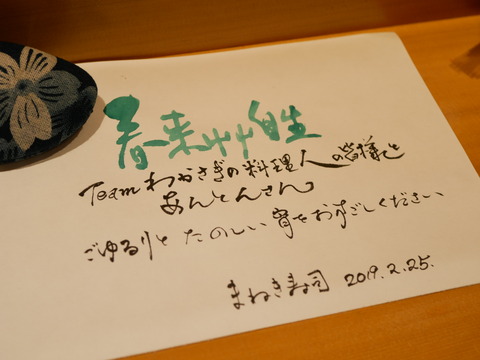 春来艸自生
Teamわかさぎの料理人の皆様と
あんとんさん
ごゆるりと たのしい宵をおすごしください
まねき寿司 2019.2.25.